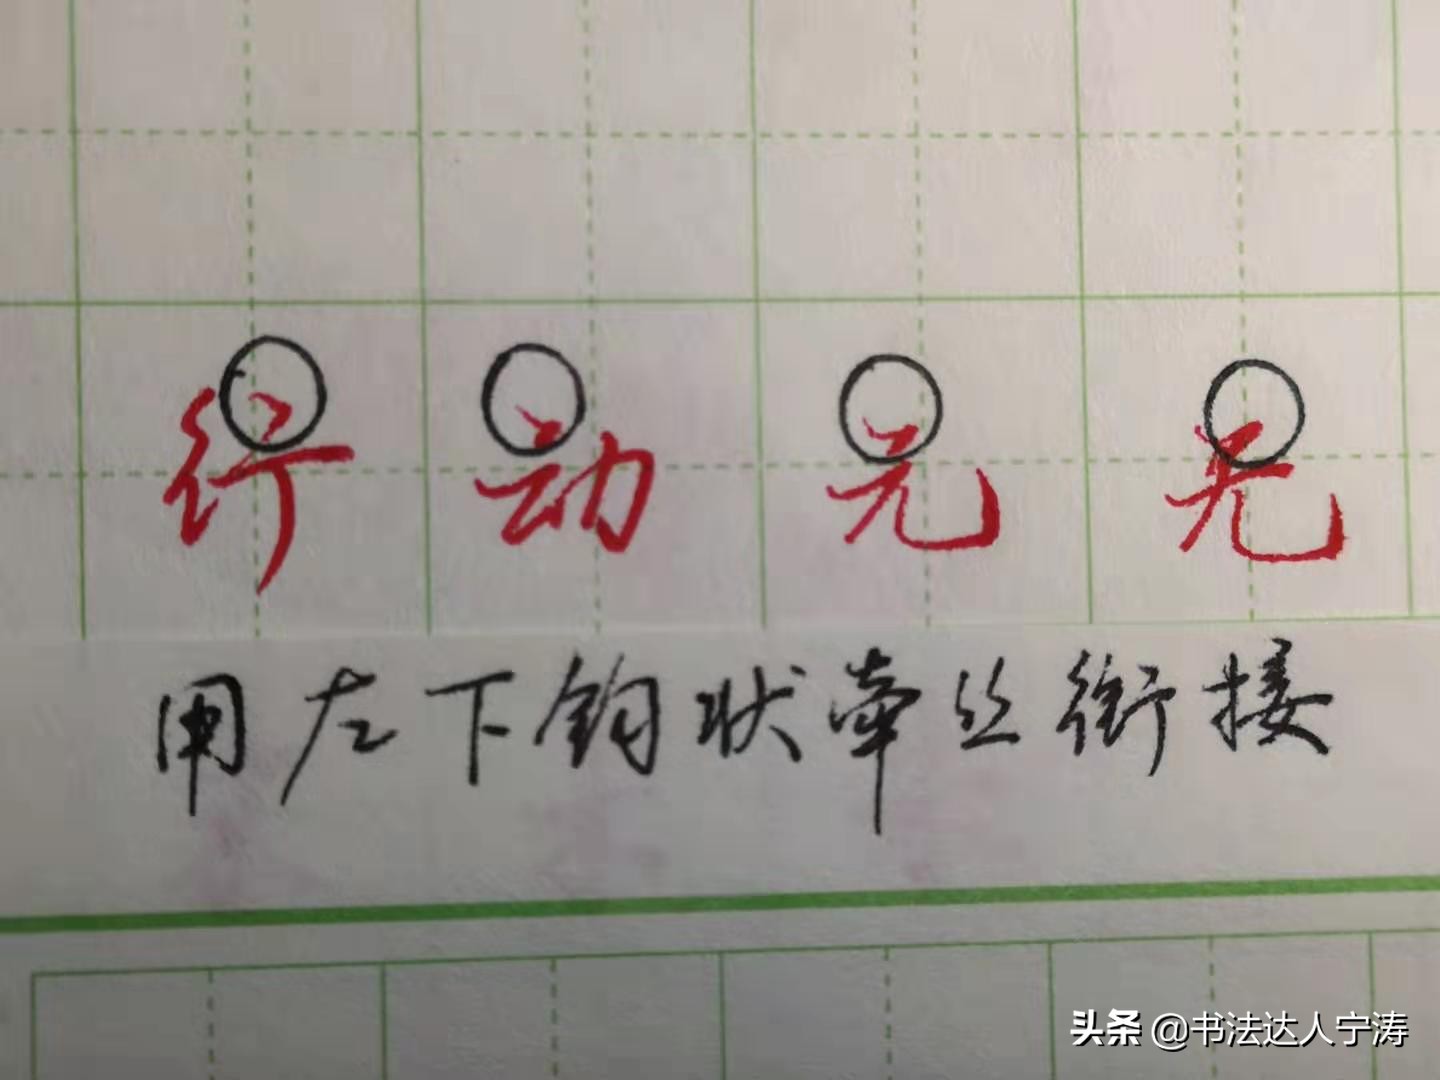 行动元无
用左下钩状牵丝衔接
头条 @书法达人宁涛